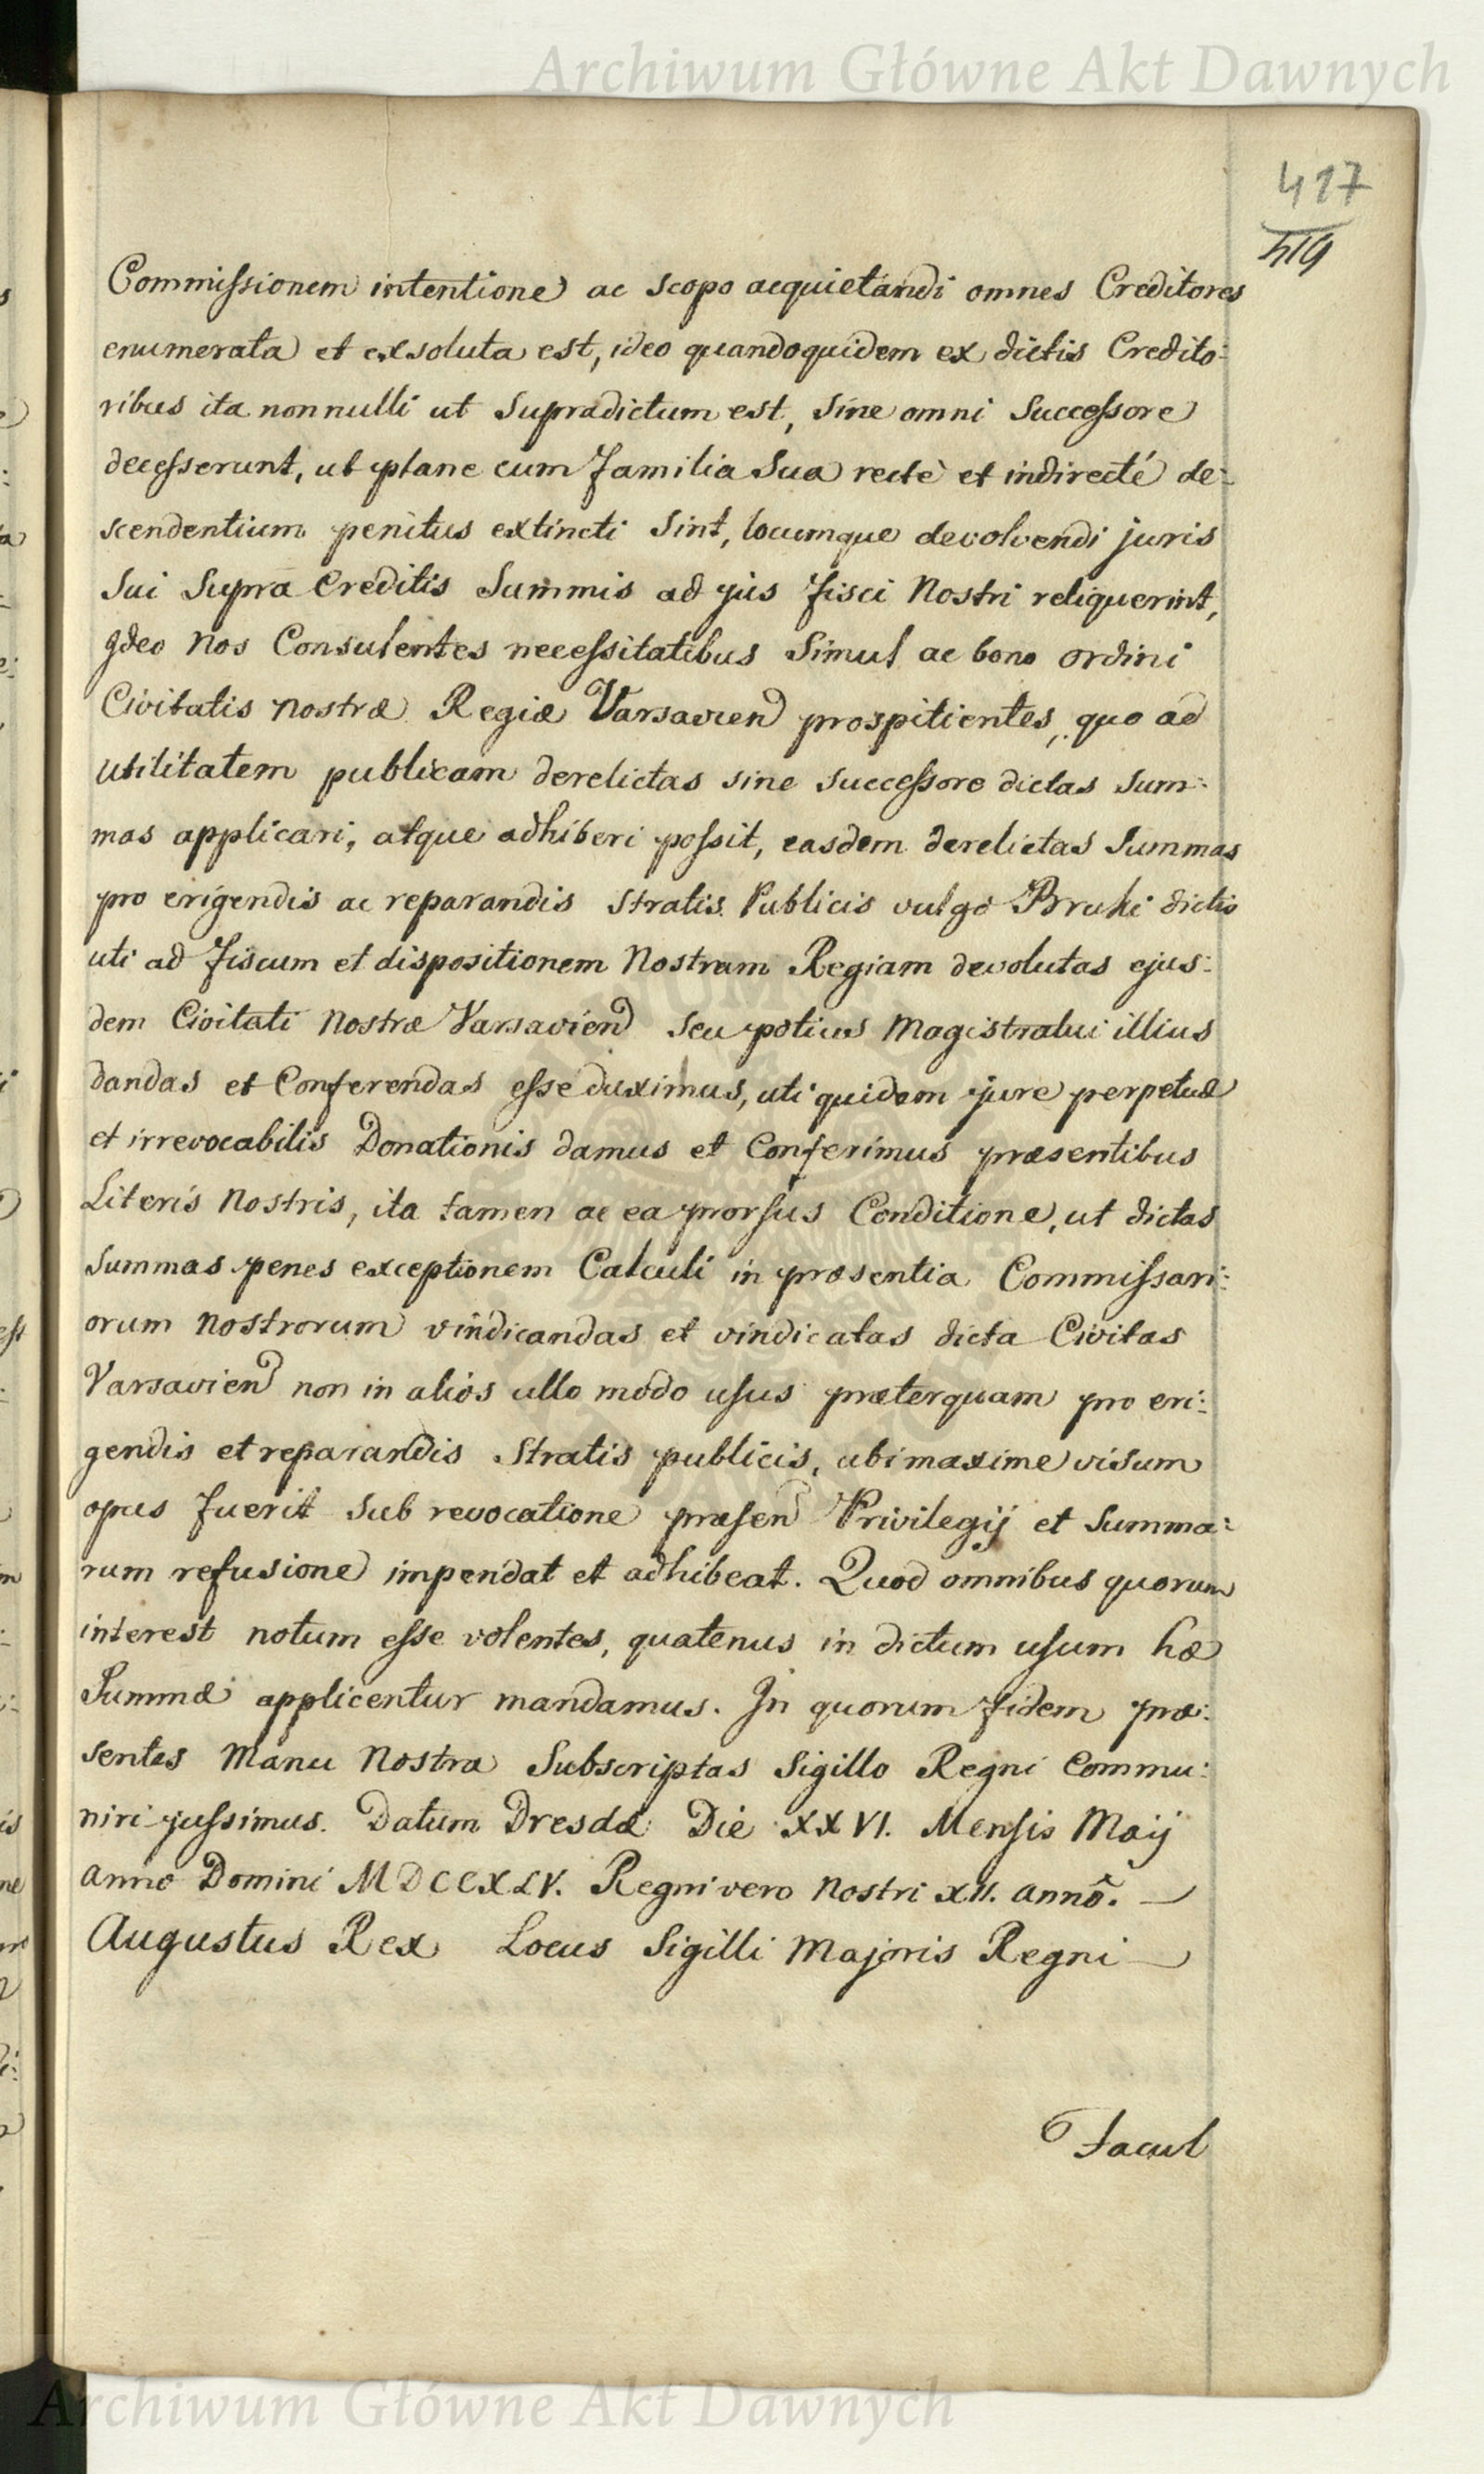 Archiwum Główne Akt Dawnych
417
419
Commissionem intentione ac scopo acquietandi omnes Creditores
enumerata et exsoluta est, ideo quandoquidem ex dictis Credito:
ribus ita nonnulli ut Supradictum est, Sine omni Successore
decesserunt, ut plane cum Familia Sua rectè et indirecté de:
scendentium penitus extincti Sint, locumque devolvendi juris
Sui Supra Creditis Summis ad jus Fisci Nostri reliquerint,
Ideo Nos Consulentes necessitatibus Simul ac bono ordini
Civitatis nostræ Regiæ Varsavien prospitientes, quo ad
utilitatem publicam derelictas sine successore dictas Sum:
mas applicari, atque adhiberi possit, easdem derelictas Summas
pro erigendis ac reparandis Stratis Publicis vulgo Bruki dictis
uti ad Fiscum et dispositionem Nostram Regiam devolutas ejus:
dem Civitati Nostræ Varsavien seu potius Magistratui illius
dandas et Conferendas esse duximus, uti quidem jure perpetuæ
et irrevocabilis Donationis damus et Conferimus præsentibus
Literis Nostris, ita tamen ac ea prorsus Conditione, ut dictas
Summas penes exceptionem Calculi in præsentia Commissari:
orum Nostrorum vindicandas et vindicatas dicta Civitas
Varsavien non in alios ullo modo usus præterquam pro eri:
gendis et reparandis Stratis publicis, ubi maxime visum
opus fuerit sub revocatione præsen Privilegij et Summa:
rum refusione impendat et adhibeat. Quod omnibus quorum
interest notum esse volentes, quatenus in dictum usum hæ
Summæ applicentur mandamus. In quorum fidem præ:
sentes Manu Nostra Subscriptas Sigillo Regni Commu:
niri jussimus. Datum Dresdæ Die XXVI. Mensis Maij
Anno Domini MDCCXLV. Regni vero Nostri XII. annõ.
Augustus Rex Locus Sigilli Majoris Regni
Facul
Archiwum Główne Akt Dawnych